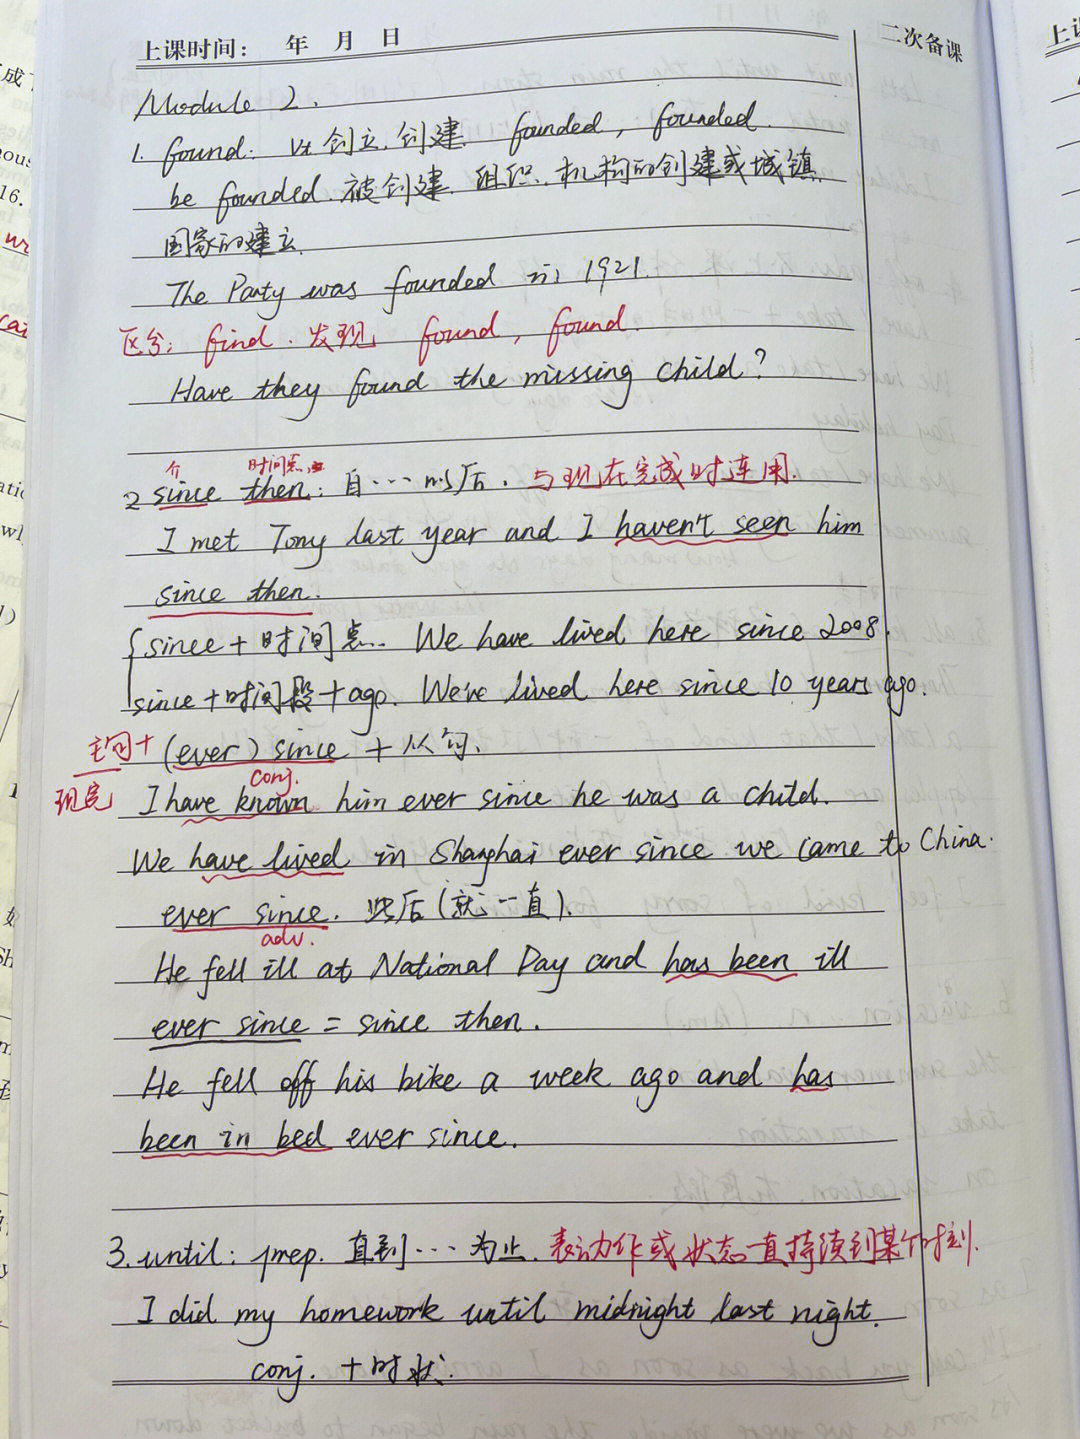 上课时间: 年 月 日
二次备课
Module 2.
1. found: vt 创立, 创建 founded, founded.
be founded. 被创建. 组织、机构的创建或城镇
国家的建立
The Party was founded in 1921.
区分: find. 发现 found, found.
Have they found the missing child?
介 时间点
2 since then: 自…以后. 与现在完成时连用.
I met Tony last year and I haven't seen him
since then.
since + 时间点. We have lived here since 2008.
since + 时间段 + ago. We've lived here since 10 years ago.
主句 + (ever) since + 从句.
conj.
现完 I have known him ever since he was a child.
We have lived in Shanghai ever since we came to China.
ever since. 此后 (就一直).
adv.
He fell ill at National Day and has been ill
ever since = since then.
He fell off his bike a week ago and has
been in bed ever since.
3. until: prep. 直到…为止. 表动作或状态一直持续到某个时刻.
I did my homework until midnight last night.
conj. + 时状.